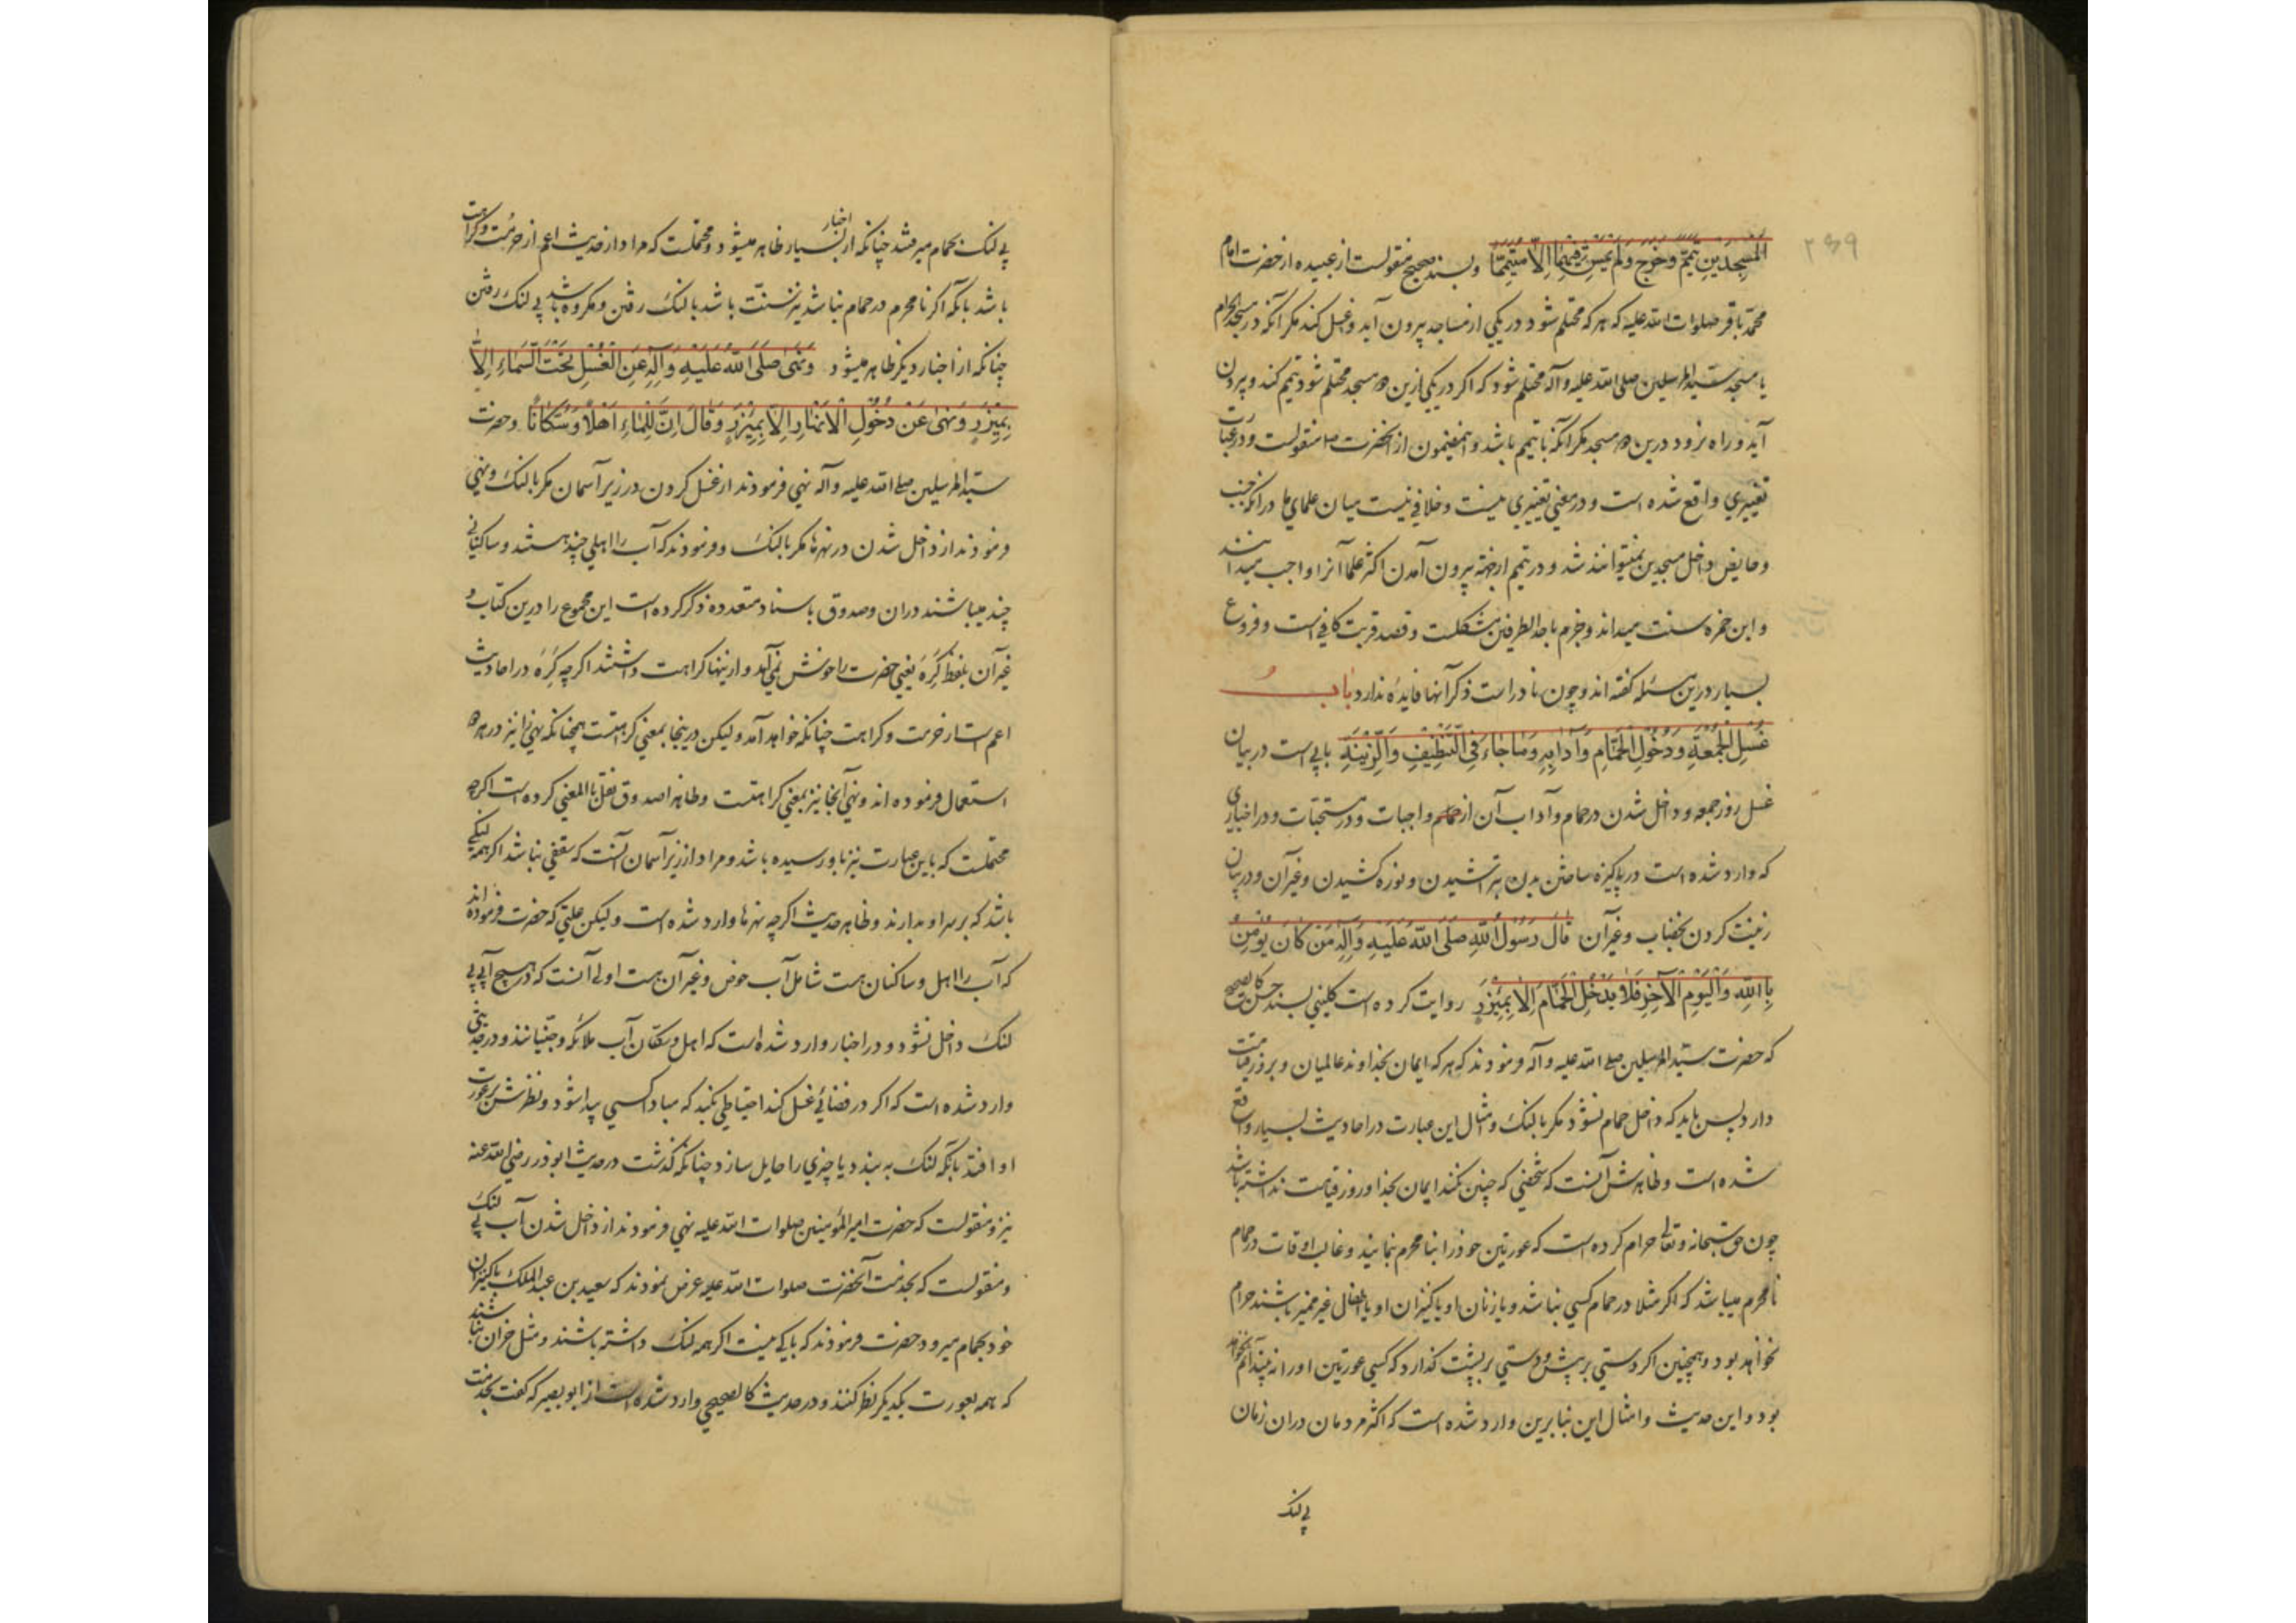 ۲۶۹
المَسْجِدَيْنِ تَيَمَّمَ وَخَرَجَ وَلَمْ يَمْشِ فِيهِمَا اِلَّا مُتَيَمِّمًا وبسند صحیح منقولست از عبیده از حضرت امام
محمد باقر صلوات الله علیه که هر که محتلم شود در یکی از مساجد بیرون آید و غسل کند مکر آنکه در مسجد الحرام
یا مسجد سید المرسلین صلی الله علیه وآله محتلم شود که اکر در یکی ازین دو مسجد محتلم شود تیمم کند و بیرون
آید و راه نرود درین دو مسجد مکر آنکه با تیمم باشد و همین مضمون از آنحضرت منقولست و در عبارت
تغییری واقع شده است و در معنی تغییری نیست و خلافی نیست میان علمای ما در آنکه جنب
و حایض داخل مسجدین نمیتوانند شد و در تیمم از جهة بیرون آمدن اکثر علما آنرا واجب میدانند
و ابن حمزه سنت میداند و جزم باحد الطرفین مشکلست و قصد قربت کافی است و فروع
بسیار درین مسئله کفته اند و چون نادر است ذکر آنها فایدهٔ ندارد باب
غُسْلِ الجُمُعَةِ وَدُخُولِ الحَمَّامِ وَآدَابِهِ وَمَا جَاءَ فِي التَّنْظِيفِ وَالزِّينَةِ بابی است در بیان
غسل روز جمعه و داخل شدن در حمام و آداب آن از واجبات و در مستحبات و در اخباری
که وارد شده است در پاکیزه ساختن بدن بتراشیدن و نوره کشیدن و غیر آن و در بیان
زینت کردن بخضاب و غیر آن قَالَ رَسُولُ اللهِ صَلَّى اللهُ عَلَيْهِ وَآلِهِ مَنْ كَانَ يُؤْمِنُ
بِاللهِ وَالْيَوْمِ الْآخِرِ فَلَا يَدْخُلِ الحَمَّامَ اِلَّا بِمِئْزَرٍ روایت کرده است کلینی بسند حسن کالصحیح
که حضرت سید المرسلین صلی الله علیه وآله فرمودند که هر که ایمان بخداوند عالمیان و بروز قیامت
دارد پس باید که داخل حمام نشود مکر با لنک و امثال این عبارت در احادیث بسیار واقع
شده است و ظاهرش آنست که شخصی که چنین نکند ایمان بخدا و روز قیامت نداشته باشد
چون حق سبحانه و تعالی حرام کرده است که عورتین خود را بنا محرم نمایند و غالب اوقات در حمام
نا محرم میباشد که اکر مثلا در حمام کسی نباشد و یا زنان او یا کنیزان او یا اطفال غیر ممیز باشند حرام
نخواهد بود و همچنین اکر دستی بر پیش و دستی بر پشت کذارد که کسی عورتین او را نه بیند آثم نخواهد
بود و این حدیث و امثال این بنا برین وارد شده است که اکثر مردمان در آن زمان
بی لنک
بی لنک بحمام میرفتند چنانکه از اخبار بسیار ظاهر میشود و محتملست که مراد از حدیث اعم از حرمت و کراهت
باشد بآنکه اکر نا محرم در حمام نباشد نیز سنت باشد با لنک رفتن و مکروه باشد بی لنک رفتن
چنانکه از اخبار دیکر ظاهر میشود وَنَهَى صَلَّى اللهُ عَلَيْهِ وَآلِهِ عَنِ الْغُسْلِ تَحْتَ السَّمَاءِ اِلَّا
بِمِئْزَرٍ وَنَهَى عَنْ دُخُولِ الْاَنْهَارِ اِلَّا بِمِئْزَرٍ وَقَالَ اِنَّ لِلْمَاءِ اَهْلًا وَسُكَّانًا وحضرت
سید المرسلین صلی الله علیه وآله نهی فرمودند از غسل کردن در زیر آسمان مکر با لنک و نهی
فرمودند از داخل شدن در نهرها مکر با لنک و فرمودند که آب را اهلی چند هستند و ساکنانی
چند میباشند در آن و صدوق باسناد متعدده ذکر کرده است این مجموع را درین کتاب و
غیر آن بلفظ كَرِهَ یعنی حضرت را خوش نمی آمد و ازینها کراهت داشتند اکرچه كَرِهَ در احادیث
اعم است از حرمت و کراهت چنانکه خواهد آمد ولیکن درینجا بمعنی کراهتست همچنانکه نهی را نیز در هر دو
استعمال فرموده اند و نهی آنجا نیز بمعنی کراهتست و ظاهرا صدوق نقل بالمعنی کرده است اکرچه
محتملست که باین عبارت نیز باو رسیده باشد و مراد از زیر آسمان آنست که سقفی نباشد اکرچه لنکی
باشد که بر سر او بدارند و ظاهر حدیث اکرچه نهرها وارد شده است ولیکن علتی که حضرت فرموده اند
که آب را اهل و ساکنان هست شامل آب حوض و غیر آن هست اولی آنست که در هیچ آبی بی
لنک داخل نشود و در اخبار وارد شده است که اهل و سکان آب ملائکه و جنیانند و در حدیثی
وارد شده است که اکر در فضائی غسل کند احتیاطی بکند که مبادا کسی پیدا شود و نظرش بر عورت
او افتد بآنکه لنک به بندد یا چیزی را حایل سازد چنانکه کذشت در حدیث ابوذر رضی الله عنه
نیز و منقولست که حضرت امیر المؤمنین صلوات الله علیه نهی فرمودند از داخل شدن آب بی لنک
و منقولست که بخدمت آنحضرت صلوات الله علیه عرض نمودند که سعید بن عبد الملک با کنیزان
خود بحمام میرود حضرت فرمودند که باکی نیست اکر همه لنک داشته باشند و مثل خران نباشند
که همه بعورت یکدیکر نظر کنند و در حدیث کالصحیح وارد شده است از ابو بصیر که کفت بخدمت